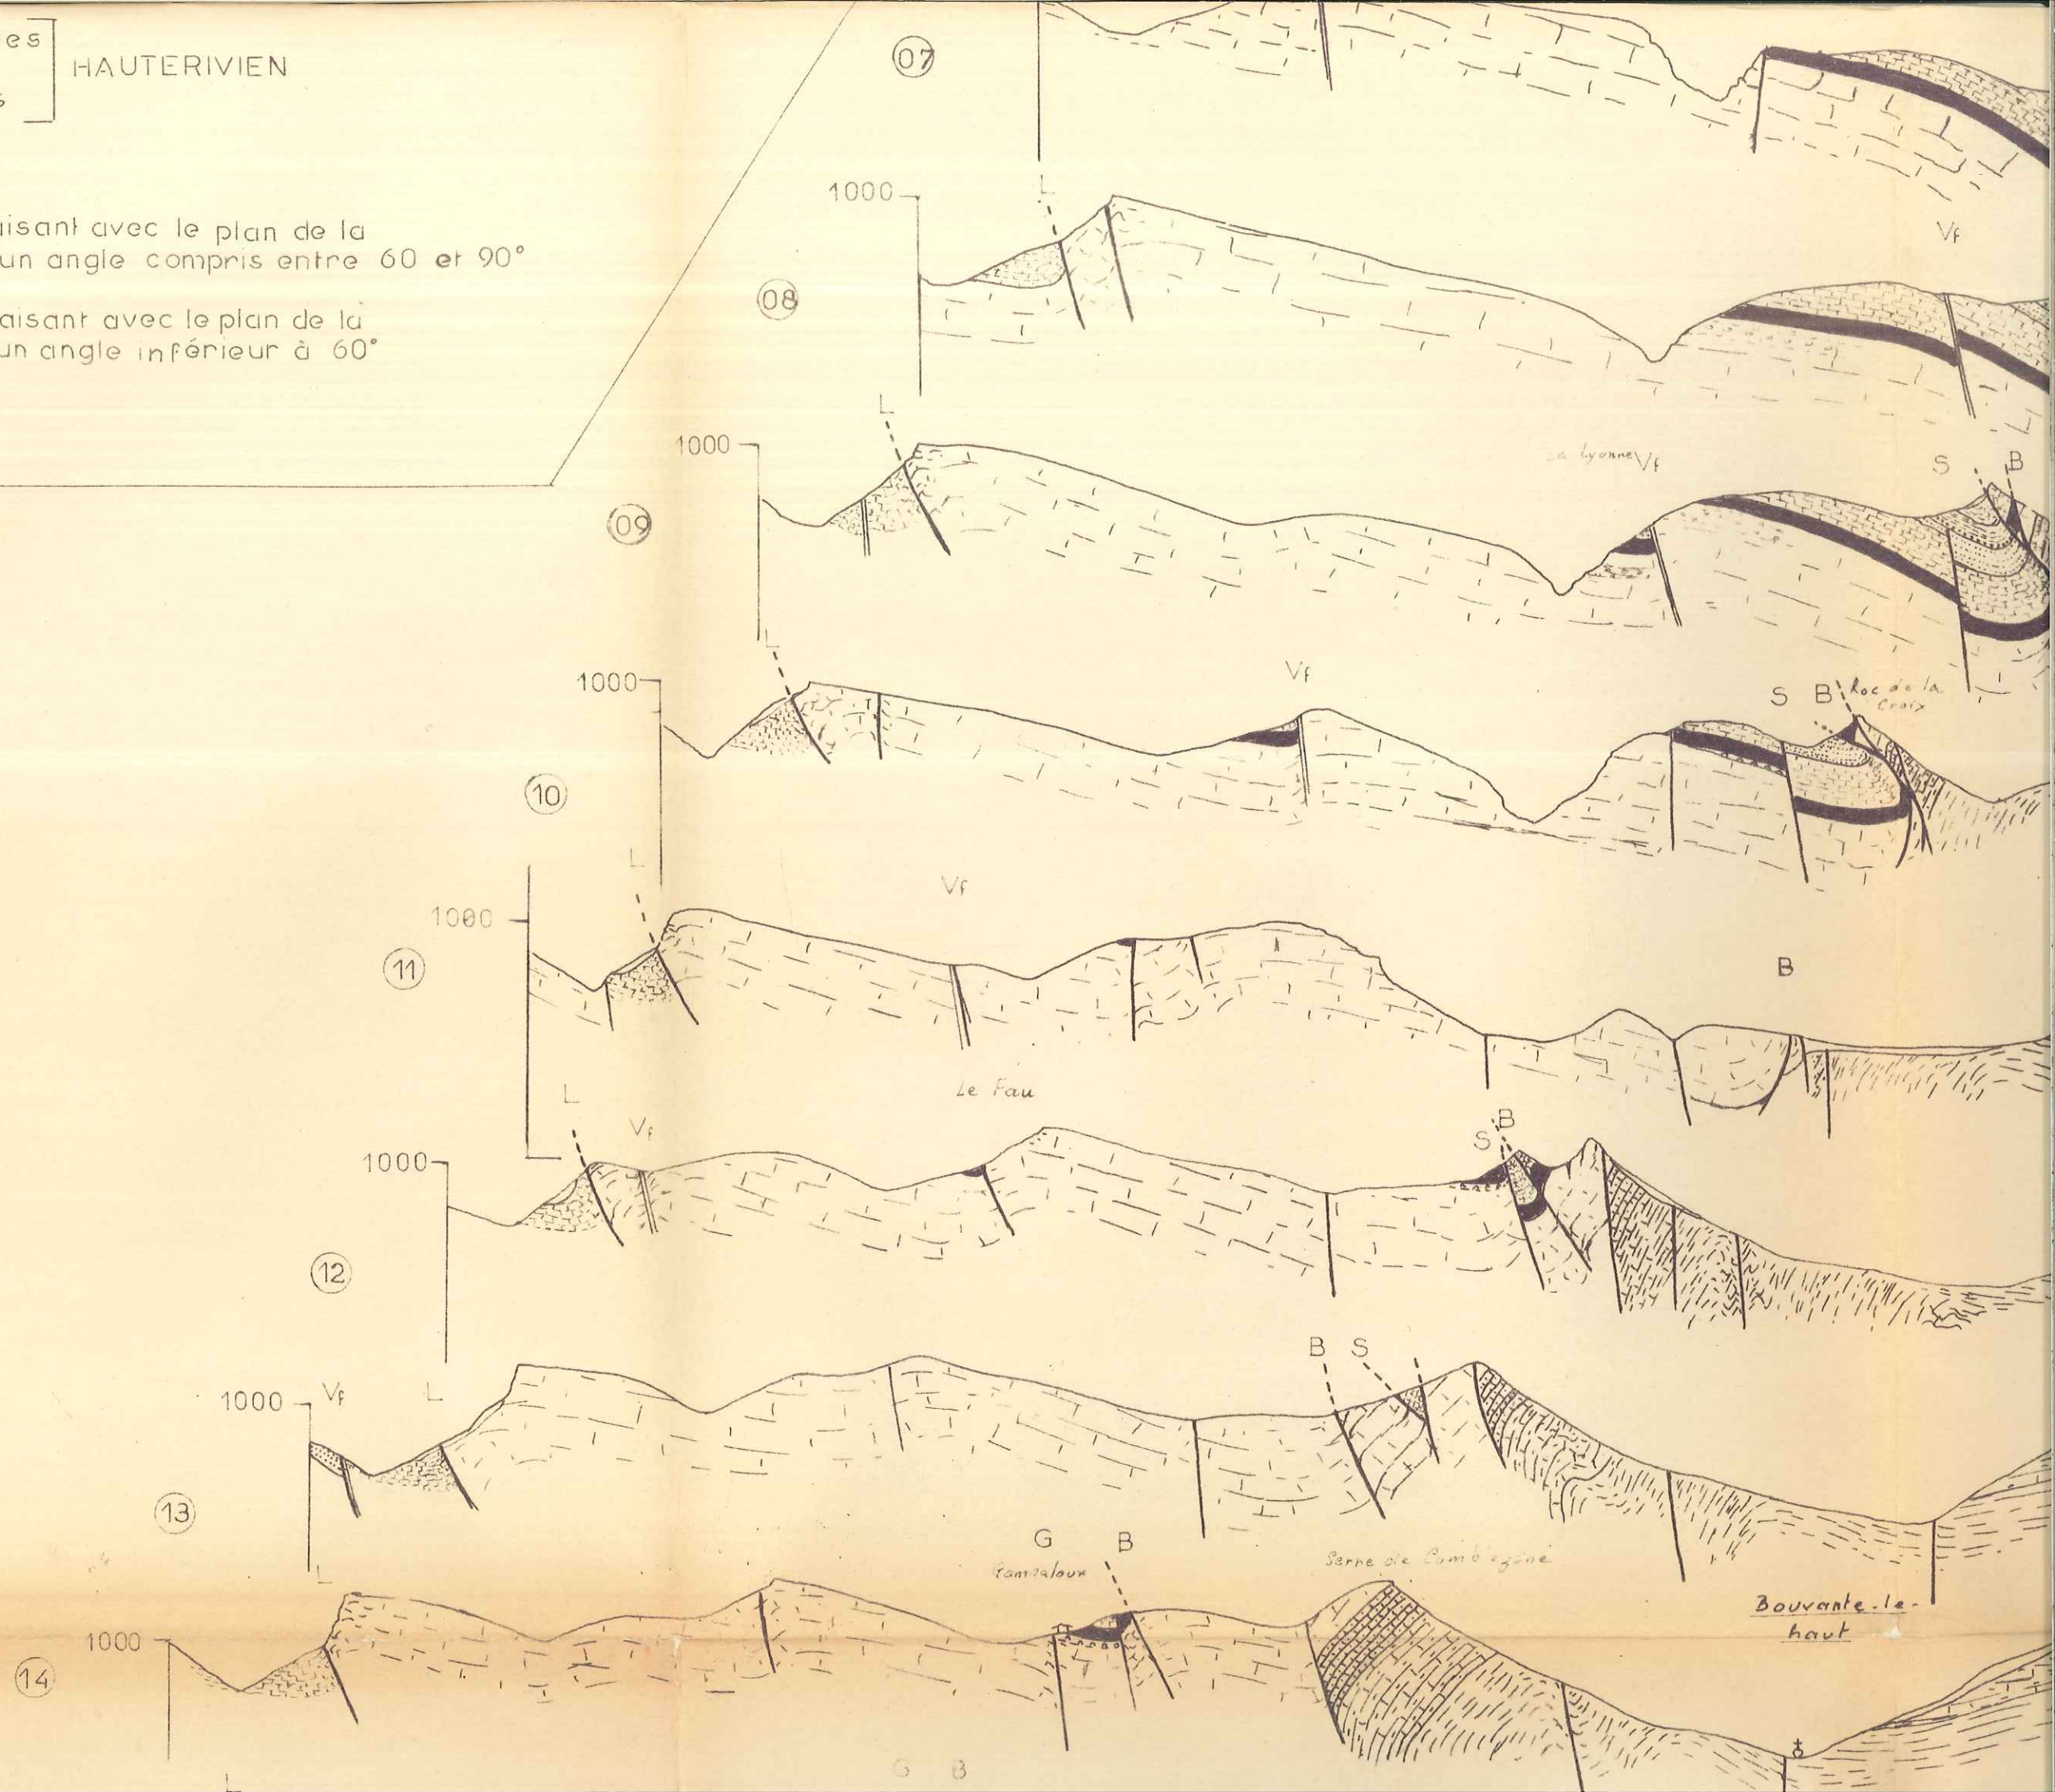 es
HAUTERIVIEN
s
aisant avec le plan de la
un angle compris entre 60 et 90°
aisant avec le plan de la
un angle inférieur à 60°
07
L
1000
Vf
08
L
1000
La Lyonne Vf
S B
09
L
1000
Vf
S B Roc de la
Croix
10
L
Vf
1000
11
B
Le Fau
L
Vf
B
S
1000
12
B S
1000 Vf L
13
G B
Serre de
L
1000
Bouvante-le-
haut
14
G B
L